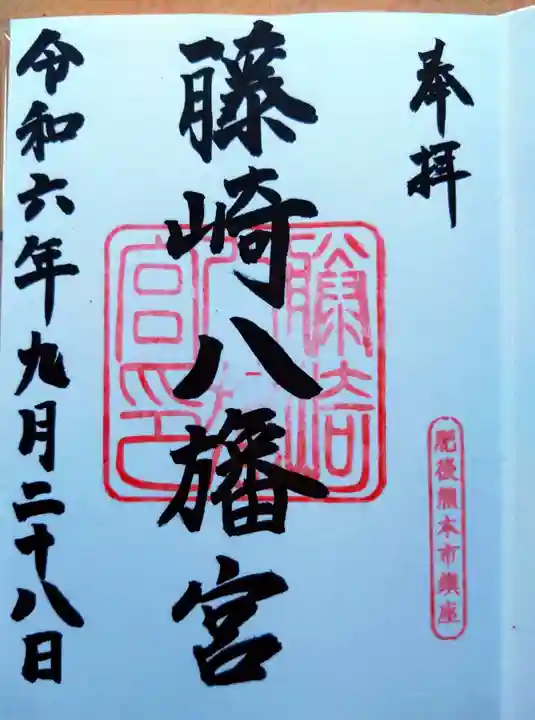 奉拝
肥後熊本市鎮座
藤崎八旛宮
藤崎八旛宮印
令和六年九月二十八日